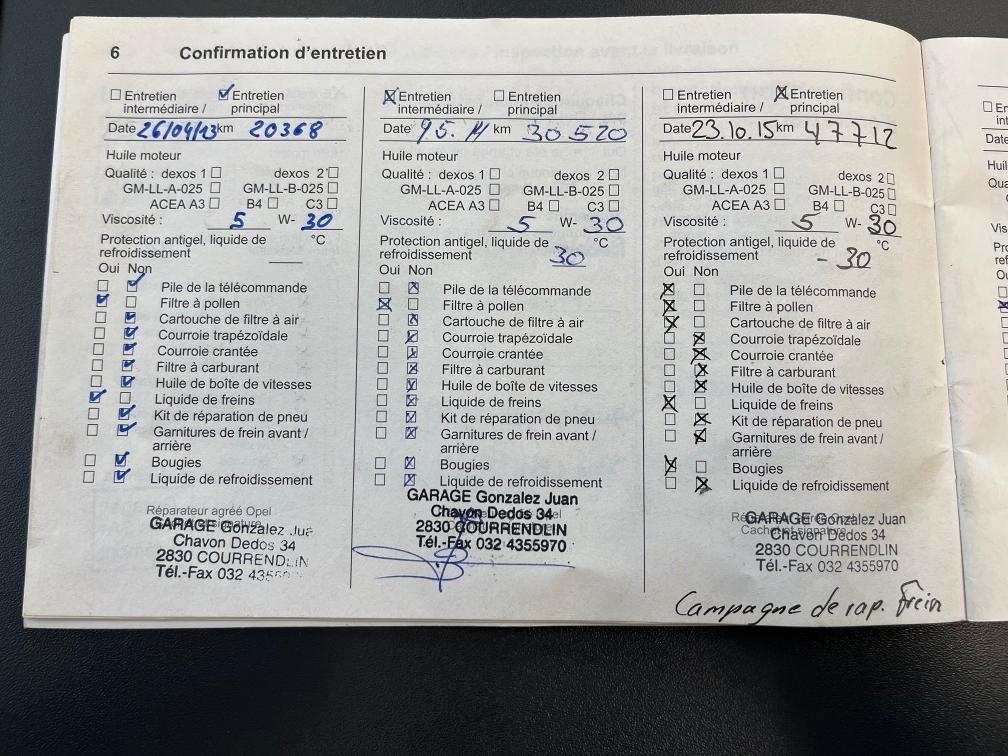 6 Confirmation d'entretien
☐ Entretien intermédiaire / ☑ Entretien principal
Date 26/04/13 km 20368
Huile moteur
Qualité : dexos 1 ☐ dexos 2 ☐
GM-LL-A-025 ☐ GM-LL-B-025 ☐
ACEA A3 ☐ B4 ☐ C3 ☐
Viscosité : 5 W- 30
Protection antigel, liquide de
refroidissement °C
Oui Non
☐ ☑ Pile de la télécommande
☑ ☐ Filtre à pollen
☐ ☑ Cartouche de filtre à air
☐ ☑ Courroie trapézoïdale
☐ ☑ Courroie crantée
☐ ☑ Filtre à carburant
☐ ☑ Huile de boîte de vitesses
☑ ☐ Liquide de freins
☐ ☑ Kit de réparation de pneu
☐ ☑ Garnitures de frein avant /
arrière
☐ ☑ Bougies
☐ ☑ Liquide de refroidissement
Réparateur agréé Opel
GARAGE Gonzalez Jua
Chavon Dedos 34
2830 COURRENDLIN
Tél.-Fax 032 4355
☒ Entretien intermédiaire / ☐ Entretien principal
Date 95. 14 km 30 520
Huile moteur
Qualité : dexos 1 ☐ dexos 2 ☐
GM-LL-A-025 ☐ GM-LL-B-025 ☐
ACEA A3 ☐ B4 ☐ C3 ☐
Viscosité : 5 W- 30
Protection antigel, liquide de
refroidissement 30 °C
Oui Non
☐ ☒ Pile de la télécommande
☒ ☐ Filtre à pollen
☐ ☒ Cartouche de filtre à air
☐ ☒ Courroie trapézoïdale
☐ ☒ Courroie crantée
☐ ☒ Filtre à carburant
☐ ☒ Huile de boîte de vitesses
☐ ☒ Liquide de freins
☐ ☒ Kit de réparation de pneu
☐ ☒ Garnitures de frein avant /
arrière
☐ ☒ Bougies
☐ ☒ Liquide de refroidissement
GARAGE Gonzalez Juan
Chavon Dedos 34
2830 COURRENDLIN
Tél.-Fax 032 4355970
☐ Entretien intermédiaire / ☒ Entretien principal
Date 23.10.15 km 47712
Huile moteur
Qualité : dexos 1 ☐ dexos 2 ☐
GM-LL-A-025 ☐ GM-LL-B-025 ☐
ACEA A3 ☐ B4 ☐ C3 ☐
Viscosité : 5 W- 30
Protection antigel, liquide de
refroidissement - 30 °C
Oui Non
☒ ☐ Pile de la télécommande
☒ ☐ Filtre à pollen
☒ ☐ Cartouche de filtre à air
☐ ☒ Courroie trapézoïdale
☐ ☒ Courroie crantée
☐ ☒ Filtre à carburant
☐ ☒ Huile de boîte de vitesses
☒ ☐ Liquide de freins
☐ ☒ Kit de réparation de pneu
☐ ☒ Garnitures de frein avant /
arrière
☒ ☐ Bougies
☐ ☒ Liquide de refroidissement
Réparateur agréé Opel
Cachet et signature
GARAGE Gonzalez Juan
Chavon Dedos 34
2830 COURRENDLIN
Tél.-Fax 032 4355970
Campagne de rap. Frein